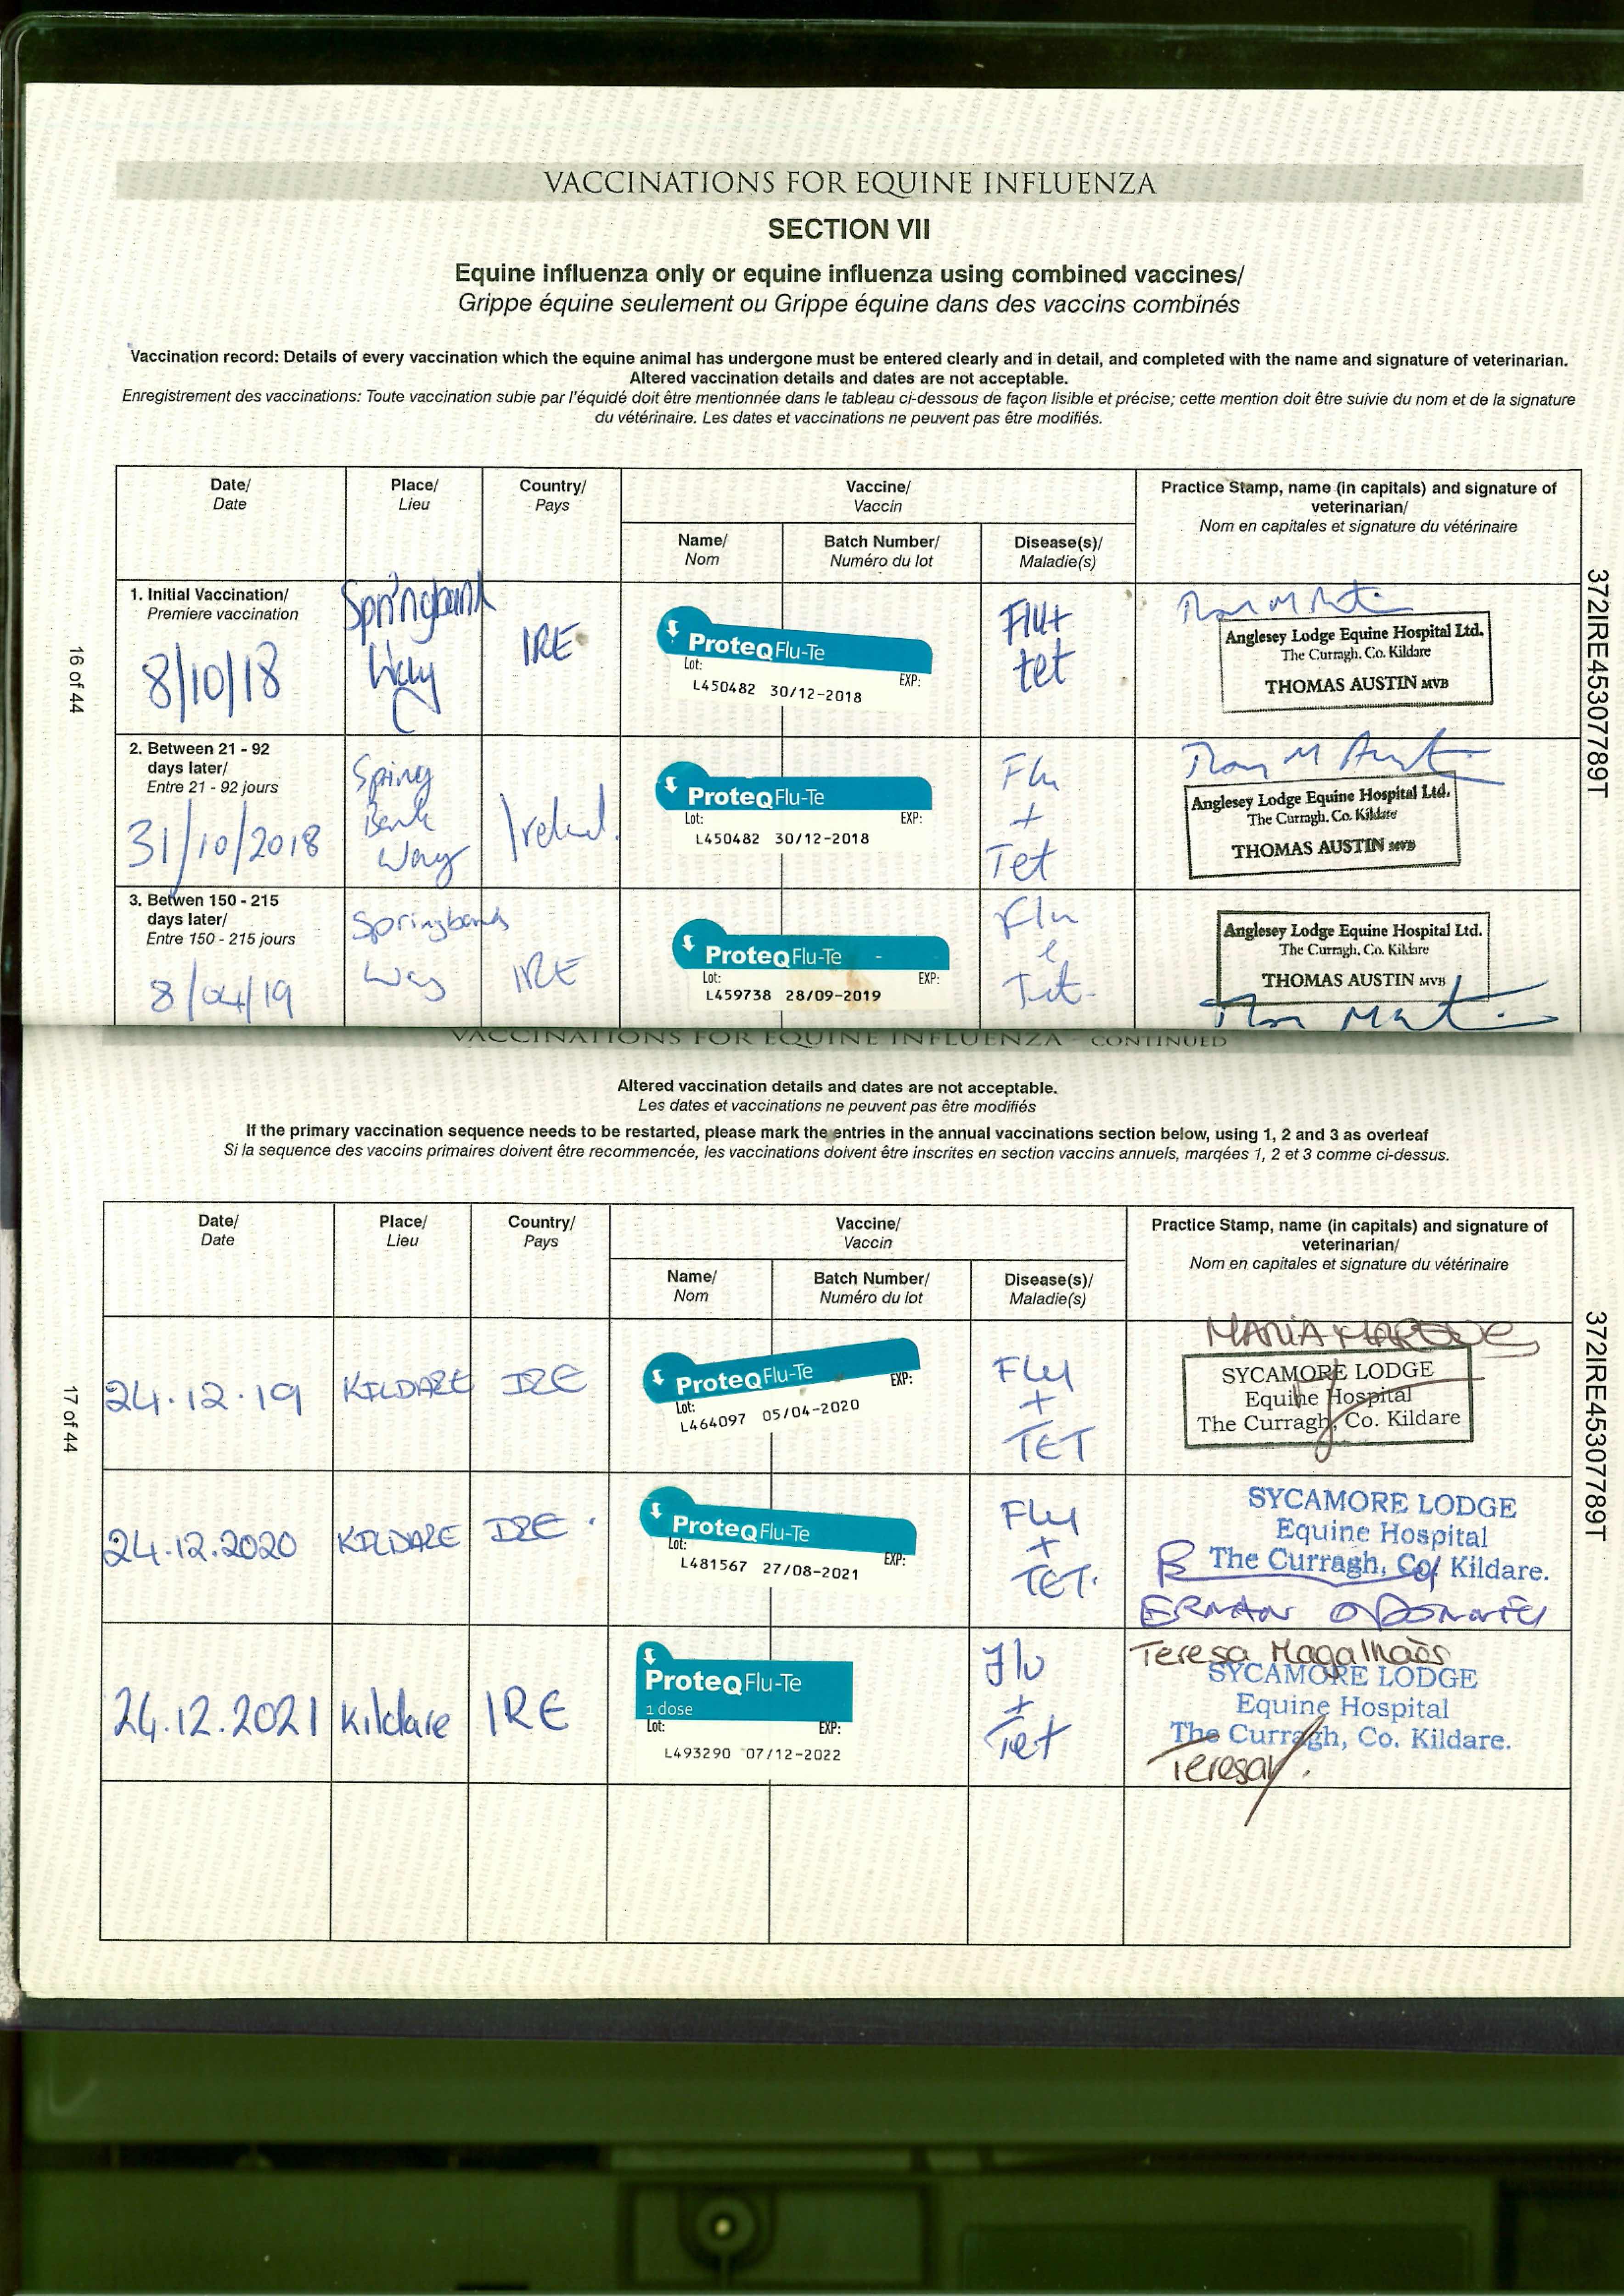 VACCINATIONS FOR EQUINE INFLUENZA
SECTION VII
Equine influenza only or equine influenza using combined vaccines/
Grippe équine seulement ou Grippe équine dans des vaccins combinés
Vaccination record: Details of every vaccination which the equine animal has undergone must be entered clearly and in detail, and completed with the name and signature of veterinarian.
Altered vaccination details and dates are not acceptable.
Enregistrement des vaccinations: Toute vaccination subie par l'équidé doit être mentionnée dans le tableau ci-dessous de façon lisible et précise; cette mention doit être suivie du nom et de la signature
du vétérinaire. Les dates et vaccinations ne peuvent pas être modifiés.
Date/
Date
Place/
Lieu
Country/
Pays
Vaccine/
Vaccin
Practice Stamp, name (in capitals) and signature of
veterinarian/
Nom en capitales et signature du vétérinaire
Name/
Nom
Batch Number/
Numéro du lot
Disease(s)/
Maladie(s)
1. Initial Vaccination/
Premiere vaccination
8/10/18
Way
IRE
ProteqFlu-Te
Lot: EXP:
L450482 30/12-2018
Flu+
tet
Anglesey Lodge Equine Hospital Ltd.
The Curragh. Co. Kildare
THOMAS AUSTIN MVB
2. Between 21 - 92
days later/
Entre 21 - 92 jours
31/10/2018
Spring
Bank
Way
Ireland.
ProteqFlu-Te
Lot: EXP:
L450482 30/12-2018
Flu
+
Tet
Anglesey Lodge Equine Hospital Ltd.
The Curragh. Co. Kildare
THOMAS AUSTIN MVB
3. Betwen 150 - 215
days later/
Entre 150 - 215 jours
8/04/19
Springbank
Way
IRE
ProteqFlu-Te
Lot: EXP:
L459738 28/09-2019
Flu
Tet
Anglesey Lodge Equine Hospital Ltd.
The Curragh. Co. Kildare
THOMAS AUSTIN MVB
16 of 44
372IRE45307789T
VACCINATIONS FOR EQUINE INFLUENZA - CONTINUED
Altered vaccination details and dates are not acceptable.
Les dates et vaccinations ne peuvent pas être modifiés
If the primary vaccination sequence needs to be restarted, please mark the entries in the annual vaccinations section below, using 1, 2 and 3 as overleaf
Si la sequence des vaccins primaires doivent être recommencée, les vaccinations doivent être inscrites en section vaccins annuels, marqées 1, 2 et 3 comme ci-dessus.
Date/
Date
Place/
Lieu
Country/
Pays
Vaccine/
Vaccin
Practice Stamp, name (in capitals) and signature of
veterinarian/
Nom en capitales et signature du vétérinaire
Name/
Nom
Batch Number/
Numéro du lot
Disease(s)/
Maladie(s)
24.12.19
KILDARE
IRE
ProteqFlu-Te
Lot: EXP:
L464097 05/04-2020
Flu
+
TET
MARIA
SYCAMORE LODGE
Equine Hospital
The Curragh, Co. Kildare
24.12.2020
KILDARE
IRE
ProteqFlu-Te
Lot: EXP:
L481567 27/08-2021
Flu
+
TET.
SYCAMORE LODGE
Equine Hospital
The Curragh, Co. Kildare.
24.12.2021
Kildare
IRE
ProteqFlu-Te
1 dose
Lot: EXP:
L493290 07/12-2022
Flu
+
Tet
Teresa Magalhaès
SYCAMORE LODGE
Equine Hospital
The Curragh, Co. Kildare.
17 of 44
372IRE45307789T